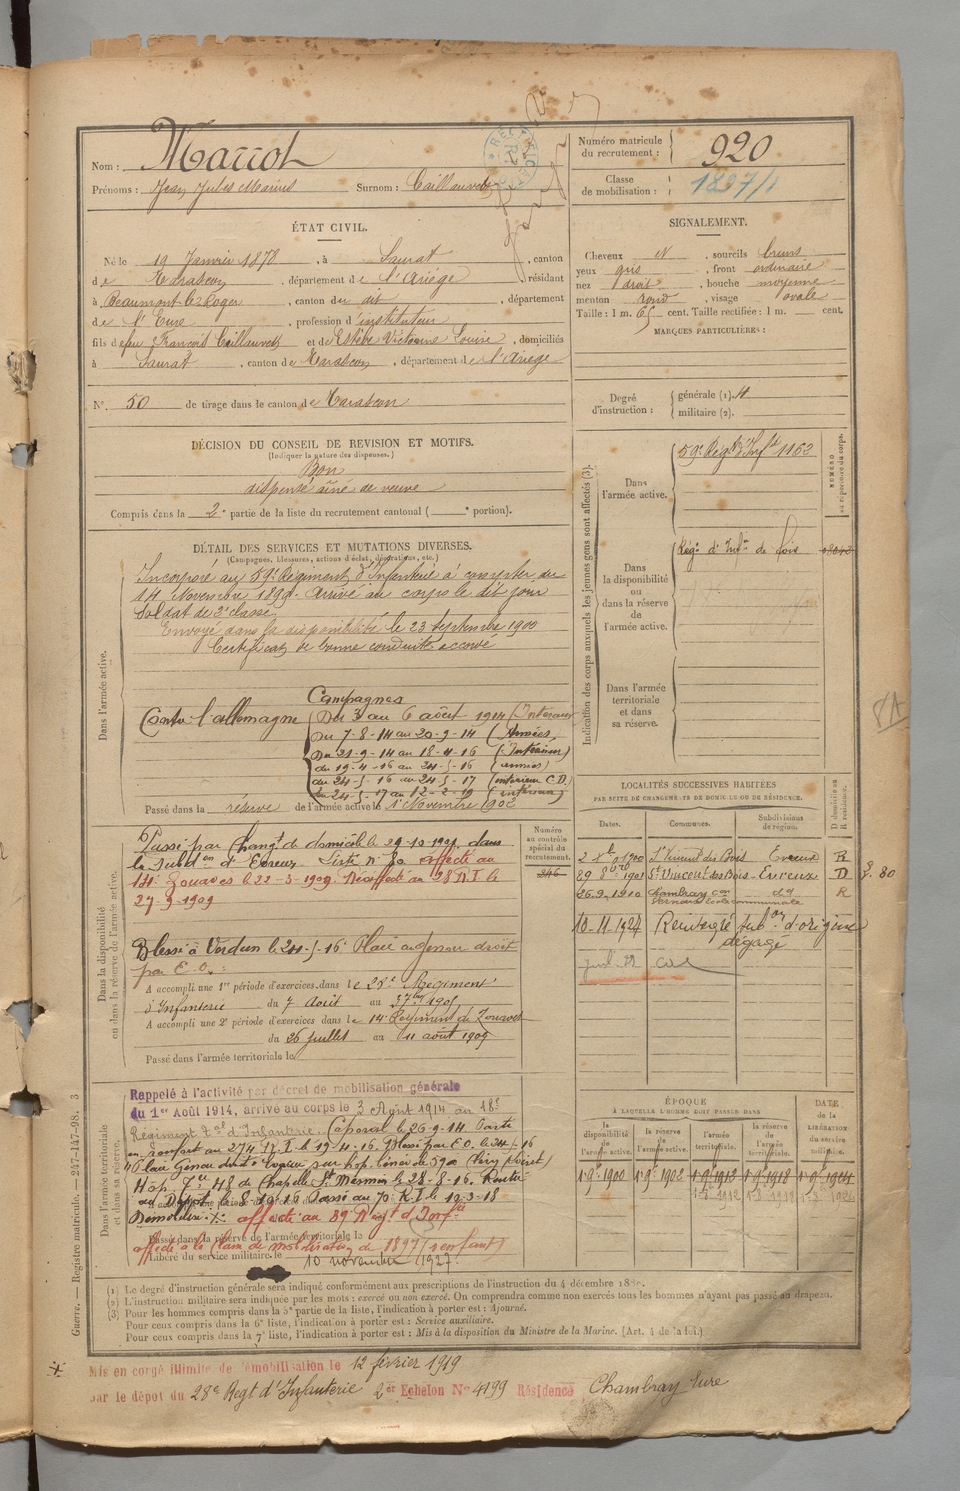 Nom : Marrot
Prénoms : Jean Jules Marius Surnom : Caillauvetz
Numéro matricule du recrutement : 920
Classe de mobilisation : 1897/1
ÉTAT CIVIL.
Né le 19 Janvier 1878, à Saurat, canton
de Tarascon, département de l'Ariège, résidant
à Beaumont-le-Roger, canton du dit, département
de l'Eure, profession d'instituteur
fils de feu François Caillauvetz et de Estèbe Victorine Louise, domiciliés
à Saurat, canton de Tarascon, département de l'Ariège
N° 50 de tirage dans le canton de Tarascon
SIGNALEMENT.
Cheveux N, sourcils bruns
yeux gris, front ordinaire
nez droit, bouche moyenne
menton rond, visage ovale
Taille : 1 m. 65 cent. Taille rectifiée : 1 m. cent.
MARQUES PARTICULIÈRES :
Degré d'instruction : générale (1).
militaire (2).
DÉCISION DU CONSEIL DE REVISION ET MOTIFS.
(Indiquer la nature des dispenses.)
Bon
dispensé aîné de veuve
Compris dans la 2e partie de la liste du recrutement cantonal ( e portion).
DÉTAIL DES SERVICES ET MUTATIONS DIVERSES.
(Campagnes, blessures, actions d'éclat, décorations, etc.)
Dans l'armée active.
Incorporé au 59e Régiment d'Infanterie à compter du
14 Novembre 1899. Arrivé au corps le dit jour
Soldat de 2e classe
Envoyé dans la disponibilité le 23 Septembre 1900
Certificat de bonne conduite accordé
Campagnes
Contre l'allemagne
Du 3 au 6 août 1914 (Intérieur
Du 7-8-14 au 20-9-14 (Armées)
Du 21-9-14 au 18-4-16 (Intérieur)
du 19-4-16 au 24-5-16 (armées)
du 24-5-16 au 24-5-17 (intérieur C.D.)
du 24-5-17 au 12-2-19 (intérieur)
Passé dans la réserve de l'armée active le 1er Novembre 1902
Indication des corps auxquels les jeunes gens sont affectés (3).
NUMÉRO au répertoire du corps.
Dans l'armée active.
59e Régt d'Infie 1163
Dans la disponibilité ou dans la réserve de l'armée active.
Régt d'Infie de Foix
Dans l'armée territoriale et dans sa réserve.
Dans la disponibilité ou dans la réserve de l'armée active.
Passé par Changt de domicile le 29-10-1901 dans
la subdon d'Evreux Liste n° 80 affecté au
14e Zouaves le 22-3-1909 Réaffecté au 28 R.I. le
27-9-1909
Blessé à Verdun le 24-5-16 Plaie au genou droit
par E.O.
A accompli une 1re période d'exercices dans le 28e Régiment
d'Infanterie du 7 Août au 3 7bre 1905
A accompli une 2e période d'exercices dans le 14e Régiment de Zouaves
du 26 juillet au 11 août 1909
Passé dans l'armée territoriale le
Numéro au contrôle spécial du recrutement.
346
LOCALITÉS SUCCESSIVES HABITÉES
PAR SUITE DE CHANGEMENTS DE DOMICILE OU DE RÉSIDENCE.
Dates. Communes. Subdivisions de région. D domicile ou R résidence.
2 1900 St Vincent des Bois Evreux R
29 8bre 1901 St Vincent des Bois Evreux D 80
26-9-1910 Chambray R
10-11-1927 Renseigné subon d'origine
dégagé
Dans l'armée territoriale et dans sa réserve.
Rappelé à l'activité par décret de mobilisation générale
du 1er Août 1914, arrivé au corps le 3 Août 1914 au 18e
Régiment d'Infanterie. Caporal le 26-9-14. Parti
en renfort au 274 R.I. le 19-4-16. Blessé par E.O. le 24-5-16
Plaie Genou droit
Hôp. 48 de Chapelle St Mesmin le 28-8-16. Rentré
au Dépôt le 8-10-16 Passé au 70 R.I. le 12-3-18
affecté au 39 Regt d'Infie
Passé dans la réserve de l'armée territoriale le
affecté à la classe de mobilisation de 1897 (1 enfant)
Libéré du service militaire le 10 novembre 1927
ÉPOQUE
À LAQUELLE L'HOMME DOIT PASSER DANS
la disponibilité de l'armée active. la réserve de l'armée active. l'armée territoriale. la réserve de l'armée territoriale.
DATE de la LIBÉRATION du service militaire.
1-9-1900 1-9-1902 1-9-1912 1-9-1918 1-9-1924
(1) Le degré d'instruction générale sera indiqué conformément aux prescriptions de l'instruction du 4 décembre 1889.
(2) L'instruction militaire sera indiquée par les mots : exercé ou non exercé. On comprendra comme non exercés tous les hommes n'ayant pas passé au drapeau.
(3) Pour les hommes compris dans la 5e partie de la liste, l'indication à porter est : Ajourné.
Pour ceux compris dans la 6e liste, l'indication à porter est : Service auxiliaire.
Pour ceux compris dans la 7e liste, l'indication à porter est : Mis à la disposition du Ministre de la Marine. (Art. 4 de la loi.)
Guerre. — Registre matricule. — 247-147-98. 3
Mis en congé illimité de démobilisation le 12 février 1919
par le dépot du 28e Regt d'Infanterie 2er Echelon N° 4199 Résidence Chambray Eure